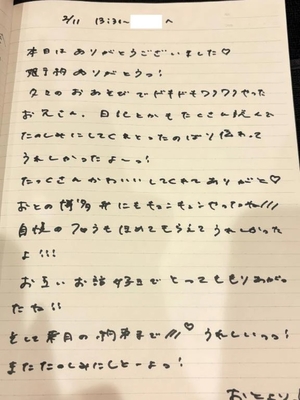 2/11 13:31〜 へ
本日はありがとうございました♡
ありがとうっ!
久々のおあそびでドキドキワクワクやった
お兄さん、日記とかもたくさん読んで
たのしみにしてくれとったのばり伝わって
うれしかったよーっ!
たっくさんかわいいしてくれてありがと♡
おとの博多弁にもキュンキュンやったね///
自慢のフロうもほめてもらえてうれしかった
よ!!!
お互いお話好きでとってももりあがっ
たね!!
そして来月の約束まで///♡ うれしいっっ!
またたのしみにしとーよっ!
おとより